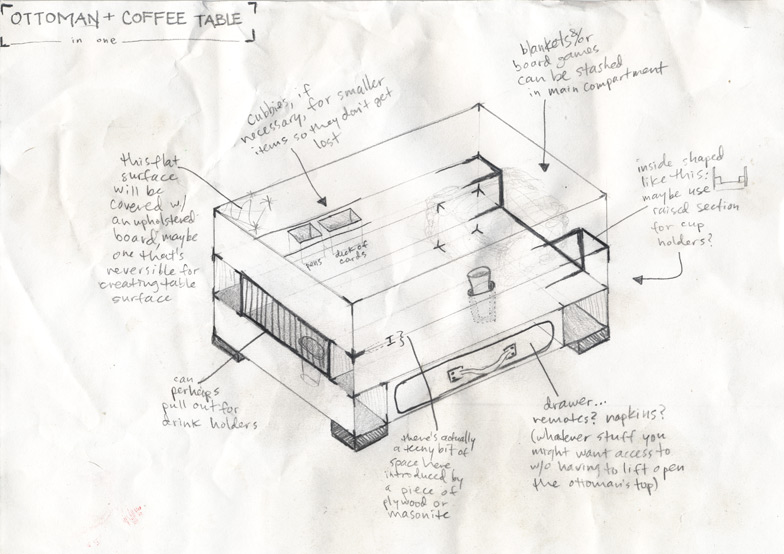 OTTOMAN + COFFEE TABLE
in one
blankets &/or
board games
can be stashed
in main compartment
Cubbies, if
necessary, for smaller
items so they don't get
lost
this flat
surface
will be
covered w/
an upholstered
board maybe
one that's
reversible for
creating table
surface
inside shaped
like this:
maybe use
raised section
for cup
holders?
pens
deck of
cards
can
perhaps
pull out for
drink holders
there's actually
a teeny bit of
space here
introduced by
a piece of
plywood or
masonite
drawer...
remotes? napkins?
(whatever stuff you
might want access to
w/o having to lift open
the ottoman's top)